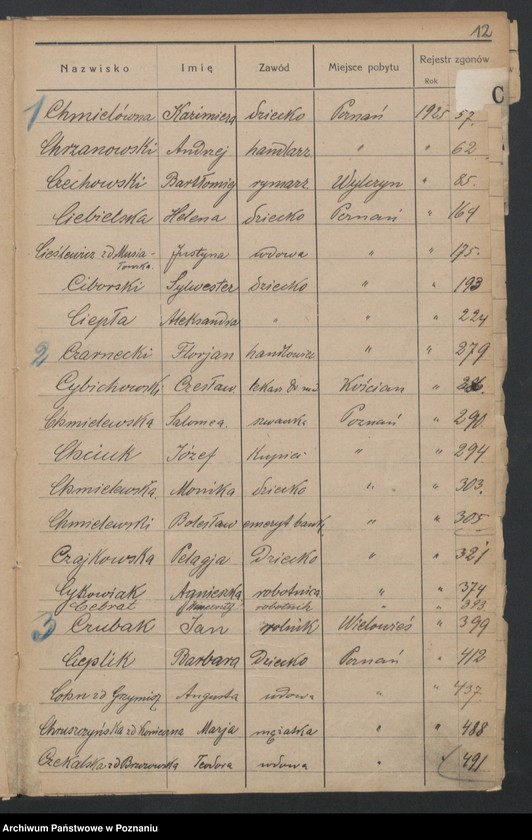 12
Nazwisko Imię Zawód Miejsce pobytu Rejestr zgonów
Rok
C
1 Chmielówna Kazimiera dziecko Poznań 1925 57.
Chrzanowski Andrzej handlarz " " 62
Czechowski Bartłomiej rymarz " 85.
Ciebielska Helena dziecko Poznań " 164
Cieślewicz zd Musia-
łowska Justyna wdowa " " 175.
Ciborski Sylwester dziecko " " 193
Ciepła Aleksandra " " " 224
2 Czarnecki Florjan handlowiec " " 279
Cybichowski Czesław lekarz Dr Kościan "
Chmielewska Salomea szwaczka Poznań " 290
Chciuk Józef Kupiec " " 294
Chmielewska Monika dziecko " " 303.
Chmielewski Bolesław emeryt bank. " " 305
Czajkowska Pelagja Dziecko " " 321
Cykowiak Agnieszka robotnica " " 374
Cebrat robotnik " " 393
3 Czubak Jan rolnik Wielowieś " 399
Cieplik Barbara Dziecko Poznań " 412
Cohn zd Augusta wdowa " " 437
Chruszczyńska zd Marja mężatka " " 488
Czekalska zd Brzozowska Teodora wdowa " 491
Archiwum Państwowe w Poznaniu